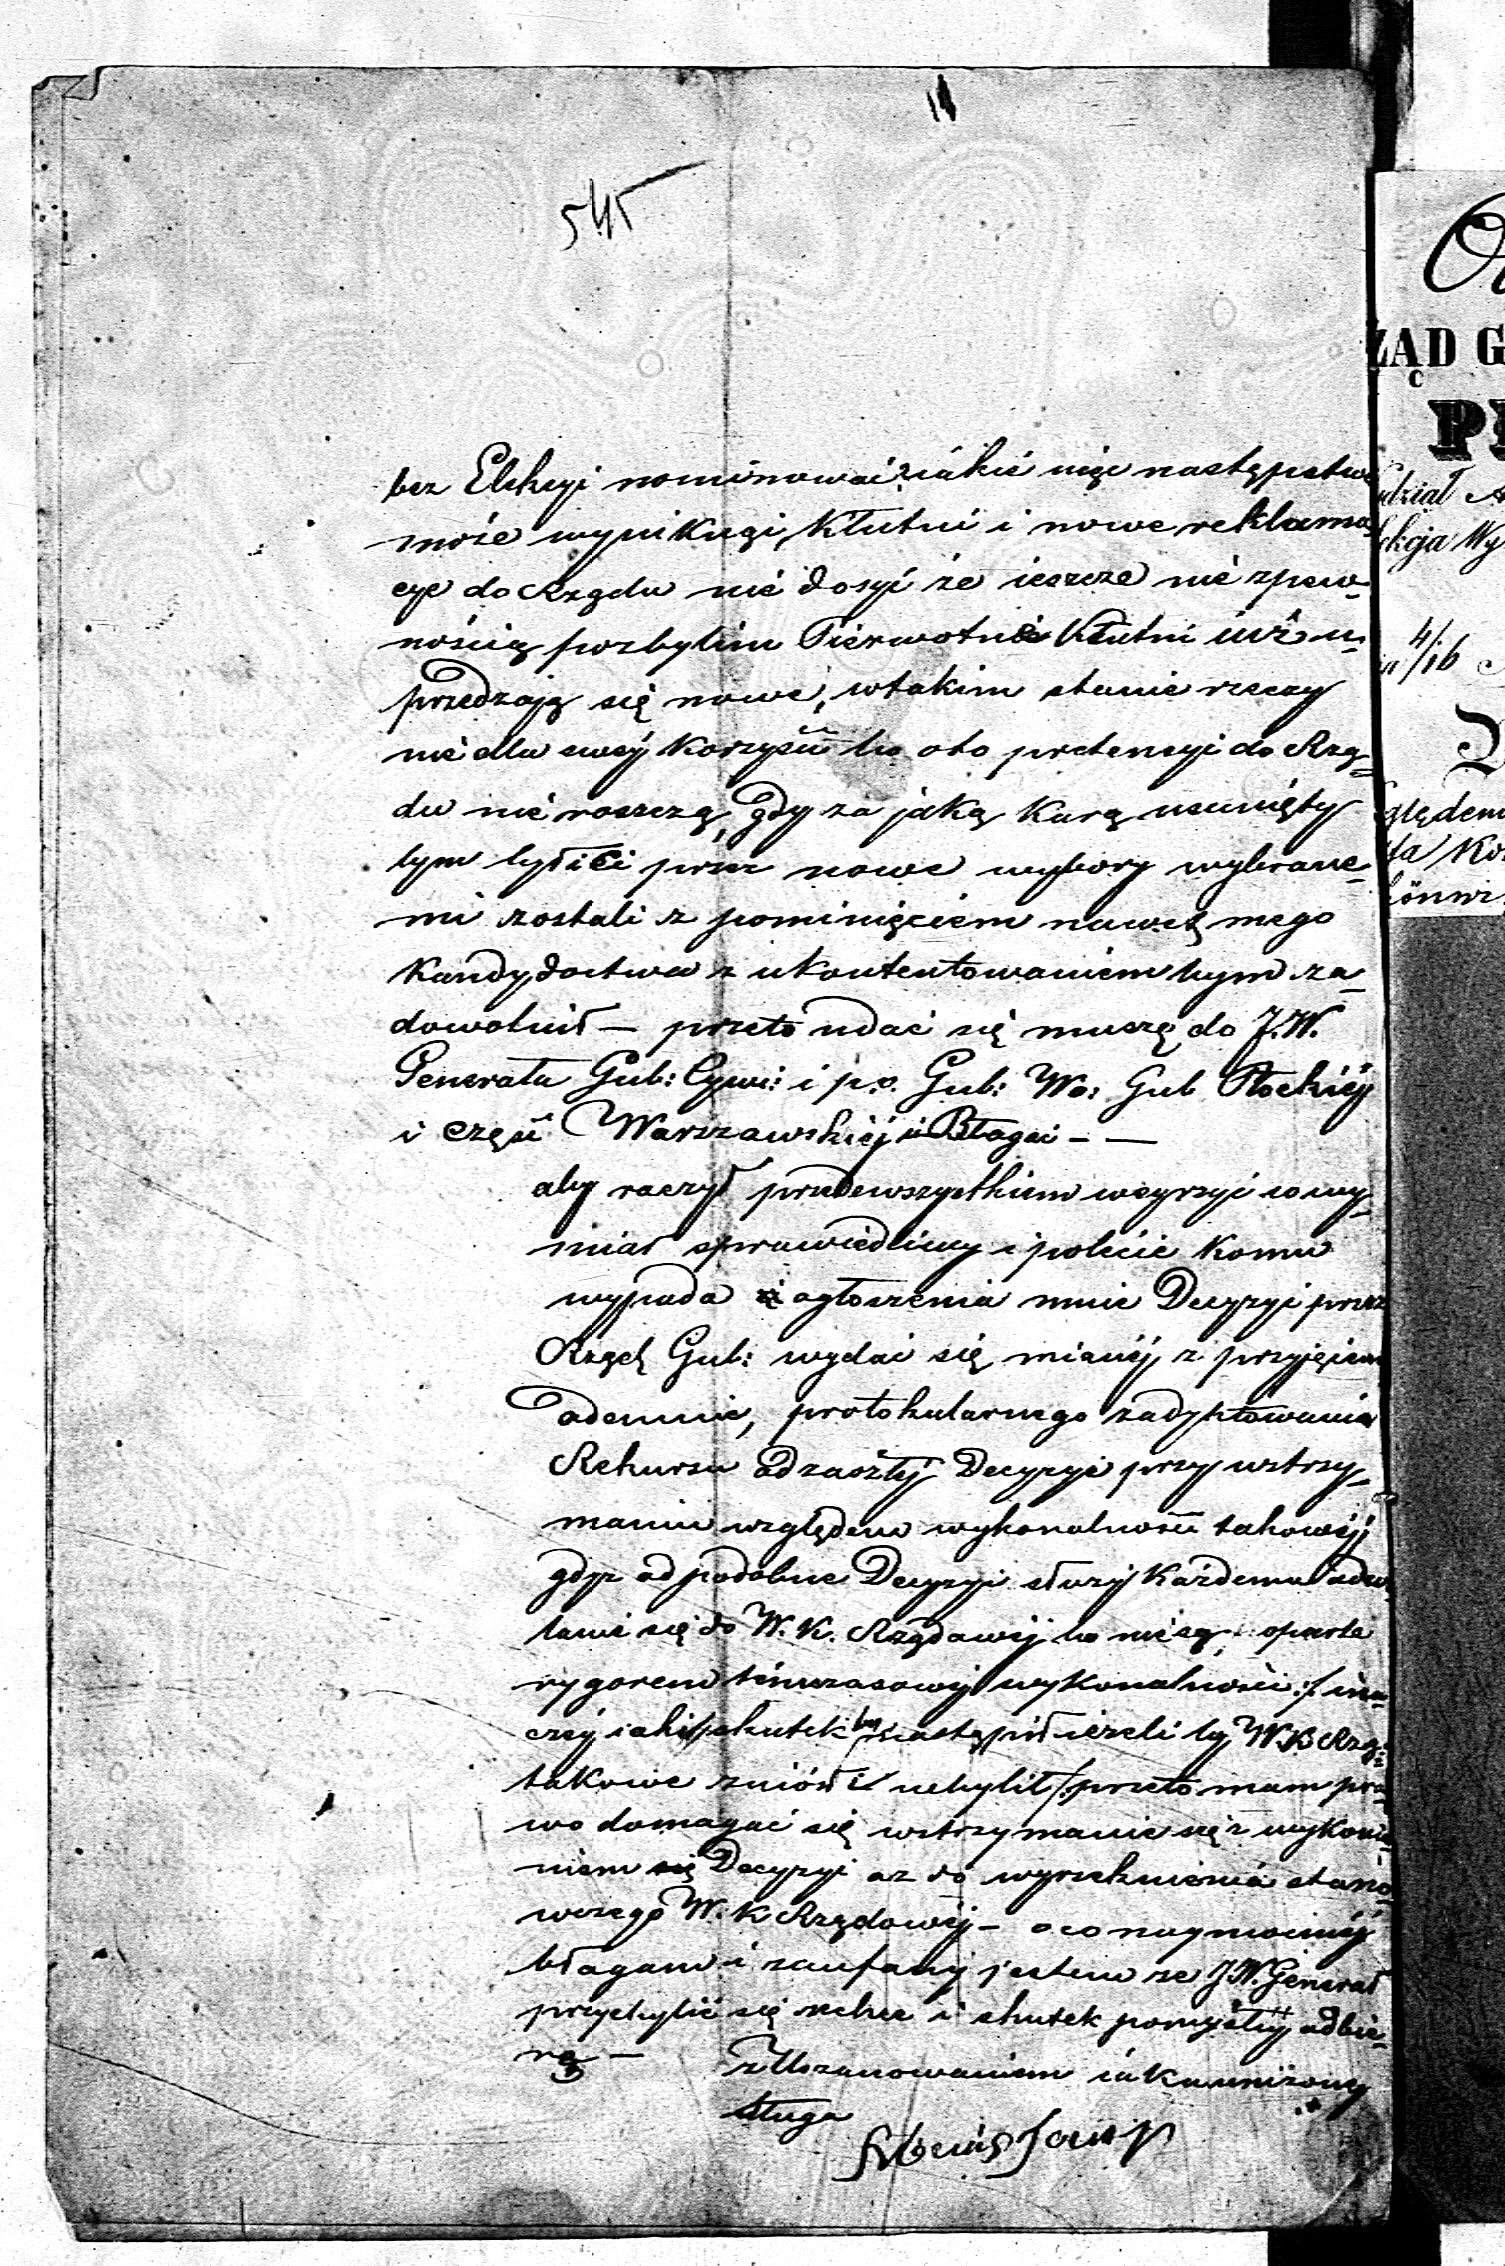 545
bez Elekcyi nominować, iakie więc następstwa
może wynikugi, Kłutni i nowe reklama-
cye do Rządu nie dosyć że ieszcze nie zpew-
nością pozbyliśm Pierwotnie Kłutni iuż u-
przedzają się nowe, wtakim stanie rzeczy
nie dla swéj Korzyści bo oto pretensyi do Rzą-
du nie roszczą, gdy za jaką Karą usunięty
bym był i ci przez nowe wybory wybrane-
mi zostali z pominięciem nawet mego
Kandydactwa z ukontentowaniem bym za-
dowolnił — przeto udać się muszę do J.W.
Generała Gub: Cywi: i p.o. Gub: Wo: Gub Płockiéj
i części Warszawskiéj i Błagać — —
aby raczył przedewszystkiem weyrzyć w wy-
miar sprawiedliwy i polecić komu
wypada ogłoszenia mnie Decyzyi przez
Rząd Gub: wydać się mianéj z przyjęciem
odemnie, protokularnego zadyktowania
Rekursu od zaszłéj Decyzyi przy wstrzy-
maniu względem wykonalności takowéj
gdyż od podobne Decyzyi służy Każdemu odwo-
łanie się do W. K. Rządowéj bo nie są oparte
rygorem tymczasowéj wykonalności :/: ina-
czéj iaki skutek by nastąpił ieżeli by W.K Rzą:
takowe zniósł i uchylił /: przeto mam pra-
wo domagać się wstrzymanie się z wykona-
niem Decyzyi aż do wyrzeknienia stano-
wczego W. K Rządowéj — o co naymocniéj
błagam i zaufany jestem że J.W. Generał
przychylić się zechce i skutek pomyślny odbie-
rę —
z Uszanowaniem iako uniżony
sługa
ZĄD G
dział
kcja Wy
4/16
ględem